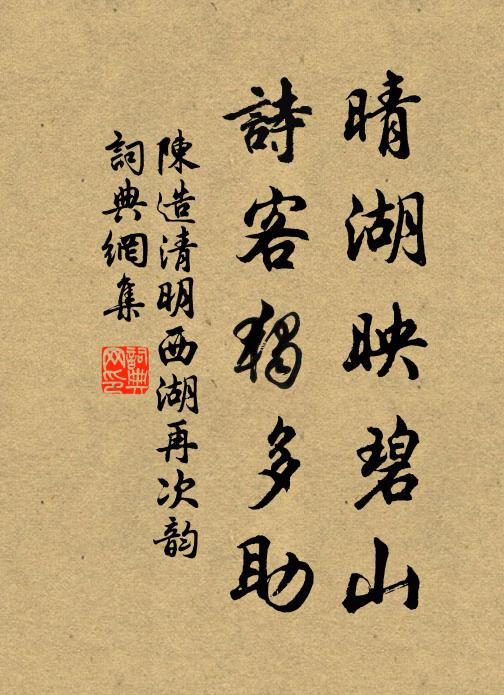 晴湖映碧山
詩客獨多助
陳造清明西湖再次韵
詞典網集
詞典網印